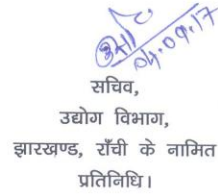 04.09.17
सचिव,
उद्योग विभाग,
झारखण्ड, राँची के नामित
प्रतिनिधि।